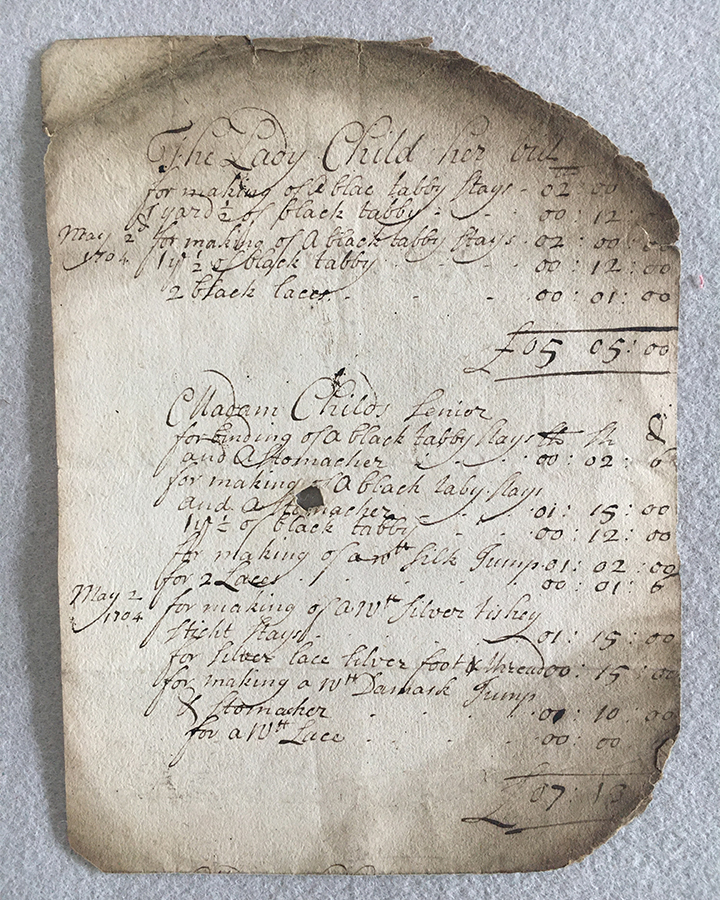 The Lady Child her bill
for making of a blac tabby stays - 02 : 00
1 yard ½ of black tabby - - - 00 : 12 :
May 2 for making of A black tabby stays - 02 : 00 : 00
1704 1 y ½ of black tabby - - 00 : 12 : 00
2 black laces - - - 00 : 01 : 00
£ 05 05 : 00
Madam Childs senior
for binding of a black tabby stays
and a stomacher - - - 00 : 02 : 6
for making of A black taby stays
and a stomacher - - - 01 : 15 : 00
1 y ½ of black tabby - - 00 : 12 : 00
for making of a wtt silk Jump 01 : 02 : 00
for 2 Laces - - - 00 : 01 : 6
May 2 for making of a Wtt silver tishey
1704 sticht stays - - - 01 : 15 : 00
for silver lace silver foot & thread 00 : 15 : 00
for making a Wtt Damask Jump
& stomacher - - - 10 : 00
for a Wtt Lace - - - 00 : 00
£ 07 : 13